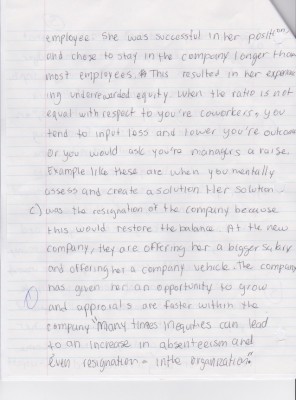 employee. She was successful in her position
and chose to stay in the company longer than
most employees. This resulted in her experienc
ing underrewarded equity. When the ratio is not
equal with respect to you're coworkers, you
tend to input loss and lower you're outcome
or you would ask you're managers a raise.
Example like these are when you mentally
assess and create a solution. Her solution
c) was the resignation of the company because
this would restore the balance. At the new
company, they are offering her a bigger salary
and offering her a company vehicle. The company
has given her an opportunity to grow
and approvals are faster within the
company "Many times inequities can lead
to an increase in absenteeism and
even resignation - in the organization."